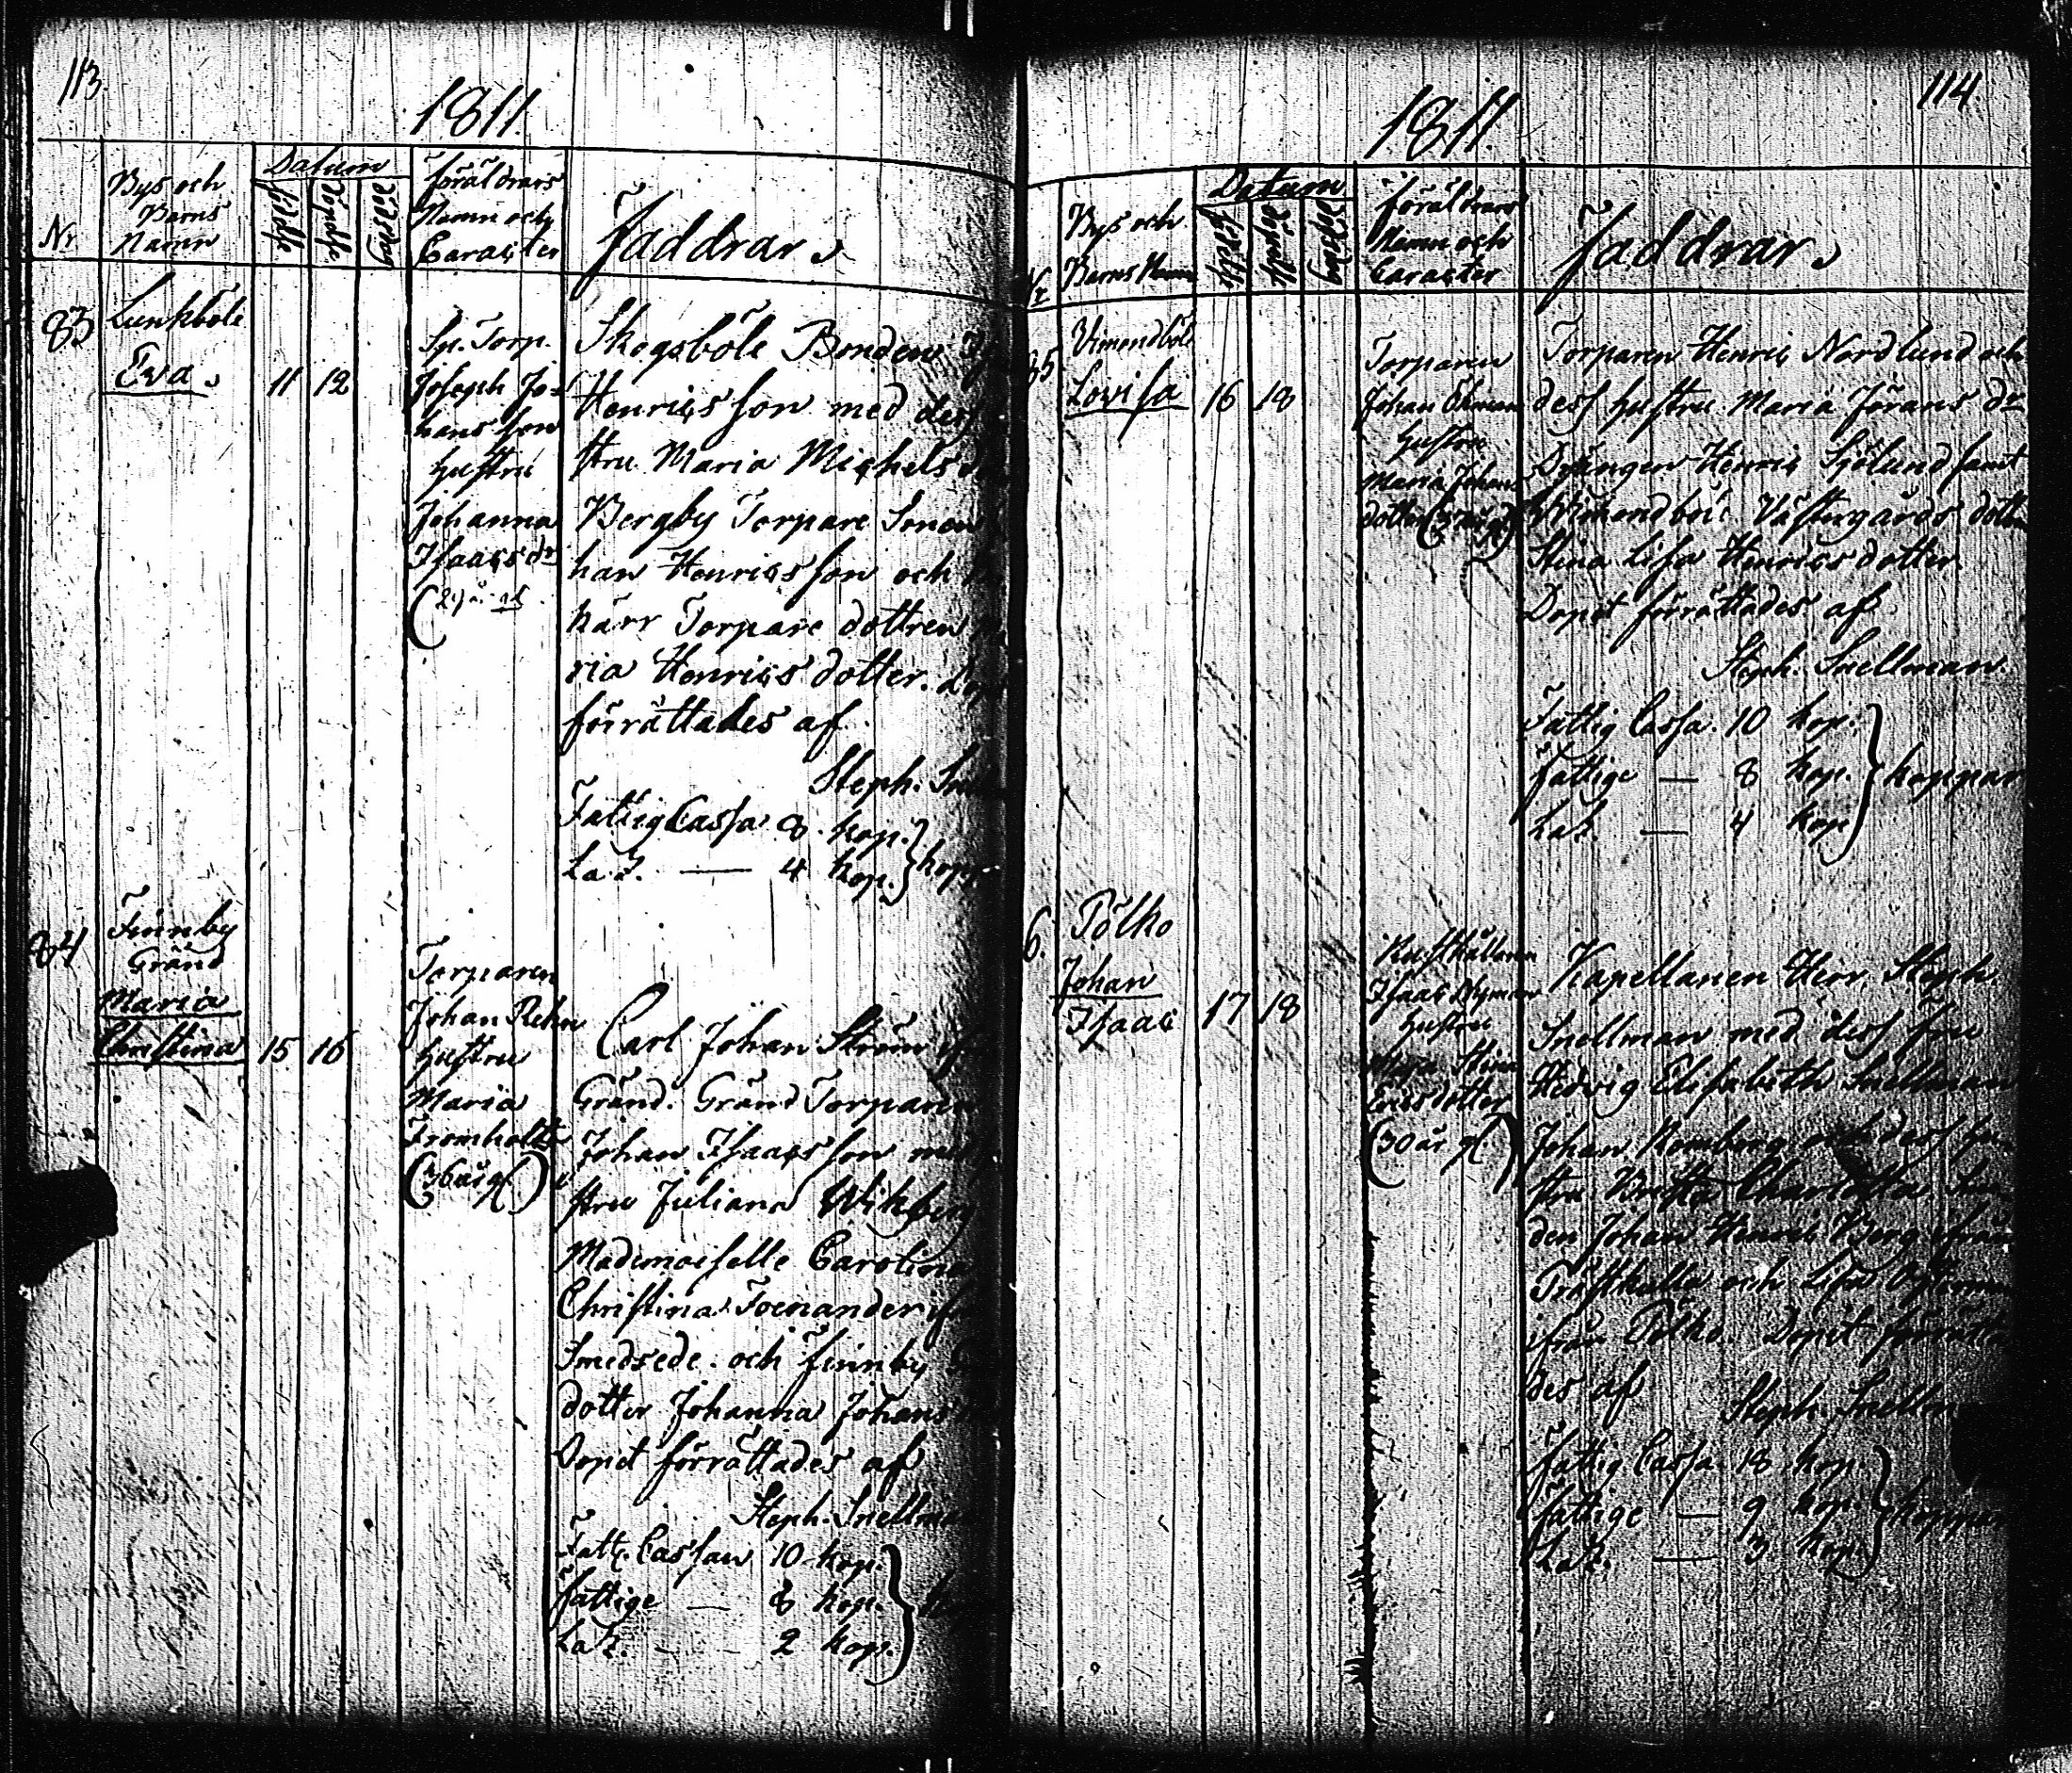 113
1811.
Nr
Bys och
Barns
Namn
Datum
födelse
döpelse
dödsdag
föräldrars
Namn och
Caracter
Faddrar.
83
Lunkböle
Eva.
11 12
Sp. Torp.
Joseph Jo=
hans son
hustru
Johanna
Isaacs dr
Skogsböle Bonden
Henrics son med dess
stru Maria Michels
Bergby Torpare Sonen
han Henrics son och
kärr Torpare dottren
ria Henrics dotter.
förrättades af
Steph.
Fattig Cassa 8 kop.
Laz. — 4 kop.
84
Finnby
Gränd
Maria
Christina
15 16
Torparen
Johan Rehn
hustru
Maria
Fromholtz
(36 år gl.)
Carl Johan Ström
Gränd. Gränd Torparen
Johan Isaacs son med
stru Juliana Wikberg
Mademoiselle Carolina
Christina Foenander
Smedsede och Finnby
dotter Johanna Johans
Dopet förrättades af
Steph. Snellman
Fatt. Cassan 10 kop.
fattige — 8 kop.
Laz. — 2 kop.
114
1811.
Nr
Bys och
Barns Namn
Datum
födelse
döpelse
dödsdag
föräldrars
Namn och
Caracter
Faddrar.
85
Vimondböle
Lovisa
16 18
Torparen
Johan Öhman
hustru
Maria Johans
dotter
Torparen Henric Nordlund och
dess hustru Maria Jörans dr
Drängen Henric Sjölund samt
Vimondböle Västergårds dotter
Stina Lisa Henrics dotter.
Dopet förrättades af
Steph. Snellman.
Fattig Cassa. 10 kop.
fattige — 8 kop. koppar
Laz. — 4 kop
6.
Pölko
Johan
Isaac
17 18
Rusthållaren
Isaac Nyman
hustru
Maja Stina
Ericsdotter
(30 år gl.)
Kapellanen Herr Steph.
Snellman med dess fru
Hedvig Elisabeth Snellman
Johan Romberg och dess hu-
stru Britta Charlotta
den Johan Henric Berg ifrån
Träskulla och Lisa Österman
ifrån Pölko. Dopet förrätta
des af
Steph. Snellm
fattig Cassa 18 kop.
fattige — 9 kop. koppar
Laz. — 3 kop.